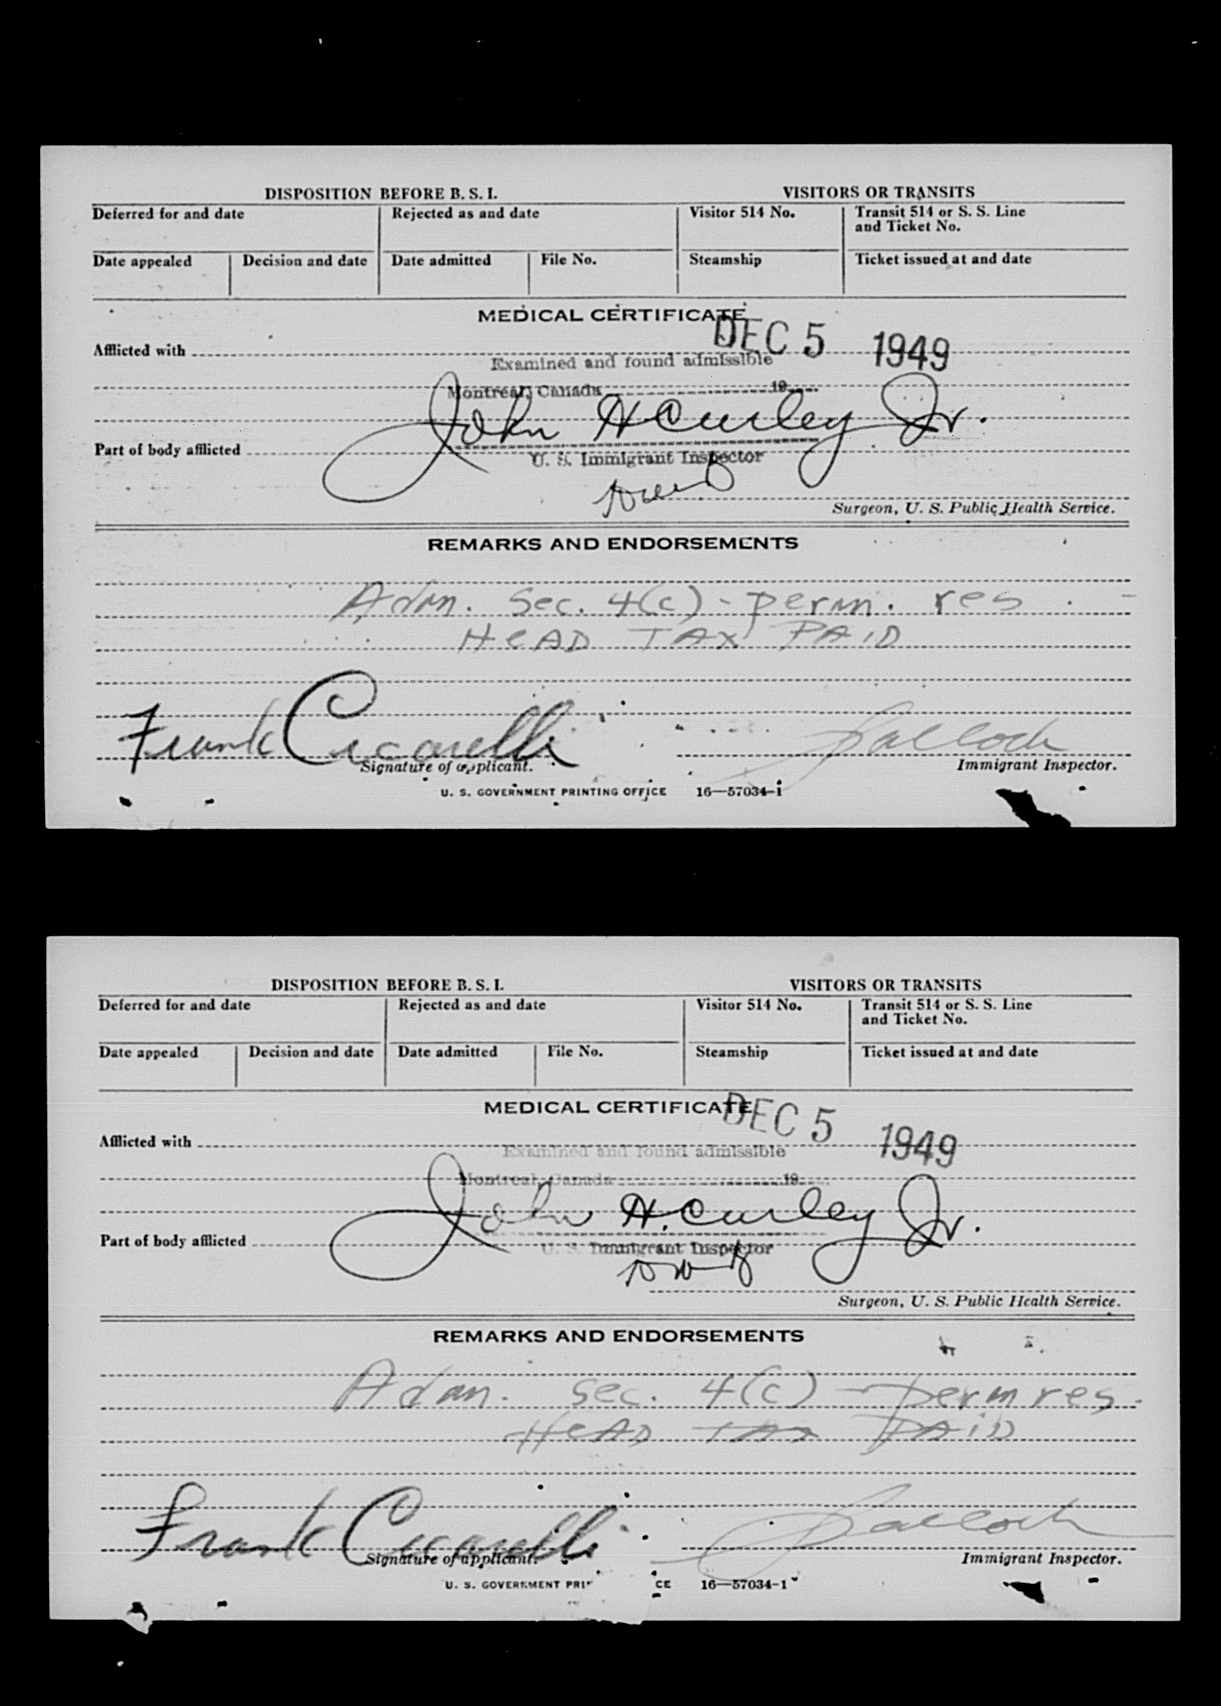 DISPOSITION BEFORE B. S. I. VISITORS OR TRANSITS
Deferred for and date Rejected as and date Visitor 514 No. Transit 514 or S. S. Line
and Ticket No.
Date appealed Decision and date Date admitted File No. Steamship Ticket issued at and date
MEDICAL CERTIFICATE
DEC 5 1949
Afflicted with
Examined and found admissible
Montreal, Canada 19
John H Curley Jr.
Part of body afflicted
U. S. Immigrant Inspector
Surgeon, U. S. Public Health Service.
REMARKS AND ENDORSEMENTS
Adm. Sec. 4(c) - perm. res
HeAD TAX PAiD
Frank Cicarelli
Signature of applicant. Immigrant Inspector.
U. S. GOVERNMENT PRINTING OFFICE 16—57034-1
DISPOSITION BEFORE B. S. I. VISITORS OR TRANSITS
Deferred for and date Rejected as and date Visitor 514 No. Transit 514 or S. S. Line
and Ticket No.
Date appealed Decision and date Date admitted File No. Steamship Ticket issued at and date
MEDICAL CERTIFICATE
DEC 5 1949
Afflicted with
Examined and found admissible
Montreal, Canada 19
John H. Curley Jr.
Part of body afflicted
U. S. Immigrant Inspector
Surgeon, U. S. Public Health Service.
REMARKS AND ENDORSEMENTS
Adm. Sec. 4(c) - perm res.
HeAD TAX PAiD
Frank Cicarelli
Signature of applicant. Immigrant Inspector.
U. S. GOVERNMENT PRI CE 16—57034-1